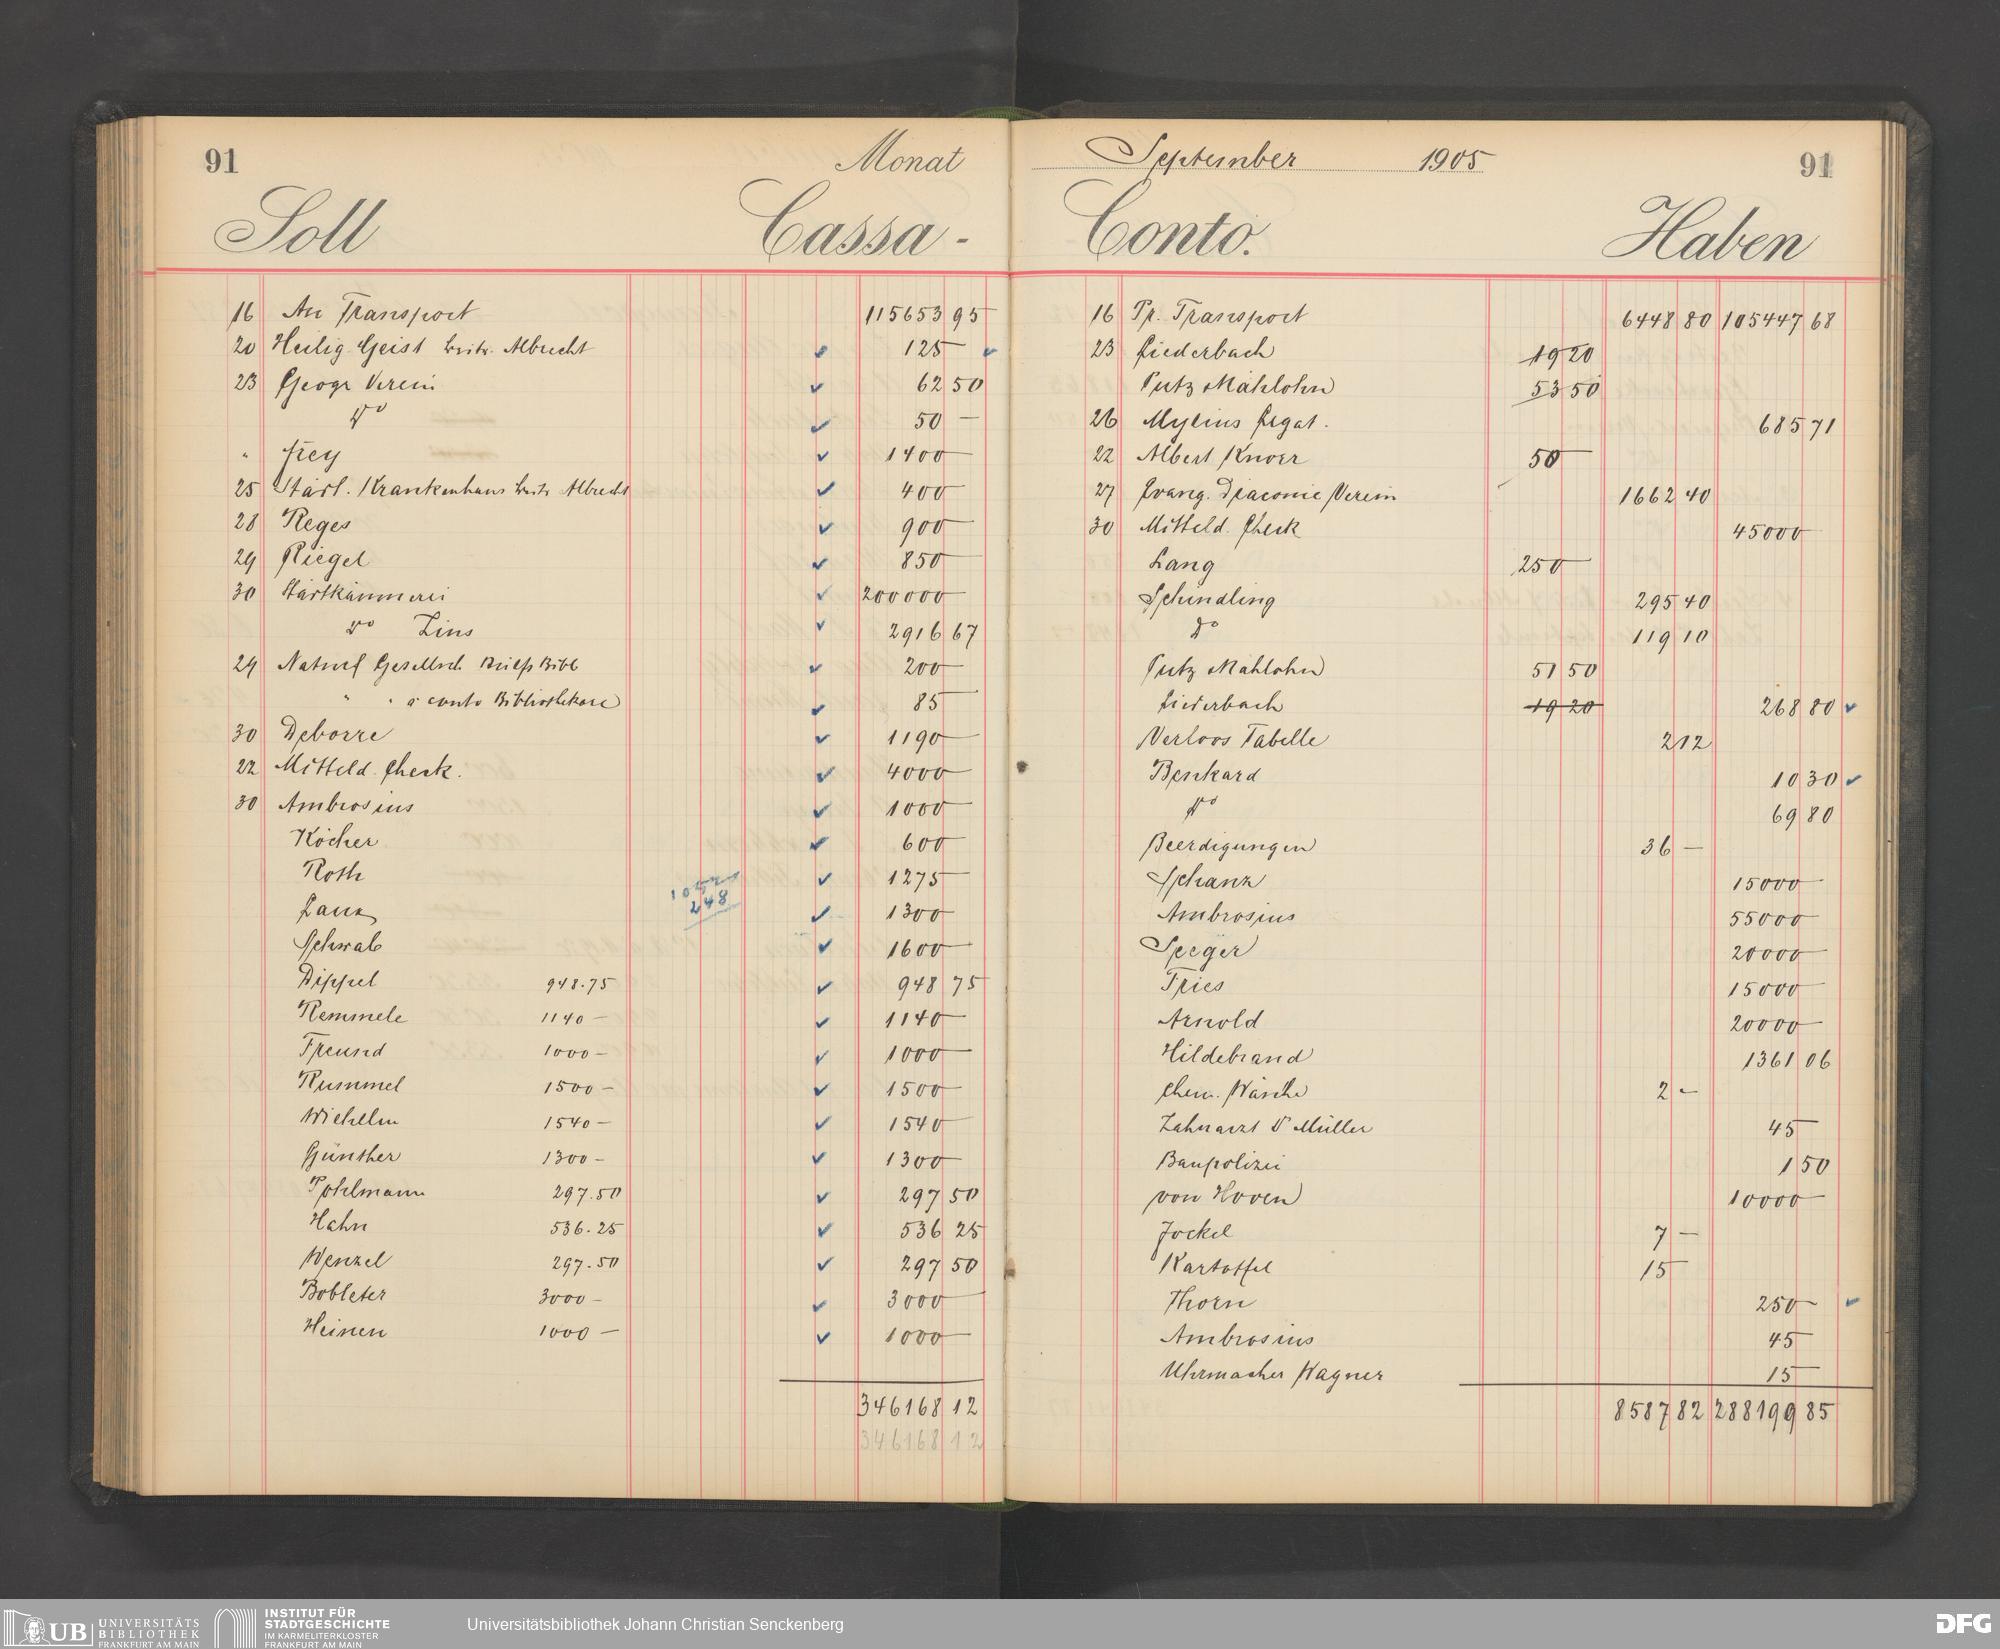 91 Monat
Soll Cassa -
16 An Transport 115653 95
20 Heilig. Geist Albrecht 125 —
23 Geogr Verein 62 50
do 50 —
" Frey 1400 —
25 Städt. Krankenhaus Albrecht 400 —
28 Reges 900 —
29 Riegel 850 —
30 Stadtkämmerei 200000 —
do Zins 2916 67
29 Naturf Gesellsch Bibl 200 —
" " a conto Bibliothekare 85 —
30 Deborre 1190 —
22 Mitteld. Check. 4000 —
30 Ambrosius 1000 —
Köcher 600 —
Roth 1275 —
248
Lanz 1300 —
Schwab 1600 —
Dippel 948.75 948 75
Remmele 1140 — 1140 —
Freund 1000 — 1000 —
Rummel 1500 — 1500 —
Wichelm 1540 — 1540 —
Günther 1300 — 1300 —
Pohlmann 297.50 297 50
Hahn 536.25 536 25
Wenzel 297.50 297 50
Bobleter 3000 — 3000 —
Heinen 1000 — 1000 —
346168 12
346168 12
September 1905 91
Conto. Haben
16 Pr. Transport 6448 80 105447 68
23 Liederbach 19 20
Putz Mählohn 53 50
26 Mylius 685 71
22 Albert Knorr 50 —
27 Evang. Diaconie Verein 1662 40
30 Mitteld. Check 45000 —
Lang 250 —
Schindling 295 40
do 119 10
Putz Mählohn 51 50
Liederbach 19 20 268 80
Verloos Tabelle 212
Benkard 10 30
do 69 80
Beerdigungen 36 —
Schanz 15000 —
Ambrosius 55000 —
Seeger 20000 —
Fries 15000 —
Arnold 20000 —
Hildebrand 1361 06
Chem. Wäsche 2 —
Zahnarzt Dr Müller 45 —
Baupolizei 1 50
von Hoven 10000 —
Jockel 7 —
Kartoffel 15 —
Thorn 250 —
Ambrosius 45 —
Uhrmacher Wagner 15 —
8587 82 288199 85
UB UNIVERSITÄTS
BIBLIOTHEK
FRANKFURT AM MAIN
INSTITUT FÜR
STADTGESCHICHTE
IM KARMELITERKLOSTER
FRANKFURT AM MAIN
Universitätsbibliothek Johann Christian Senckenberg
DFG